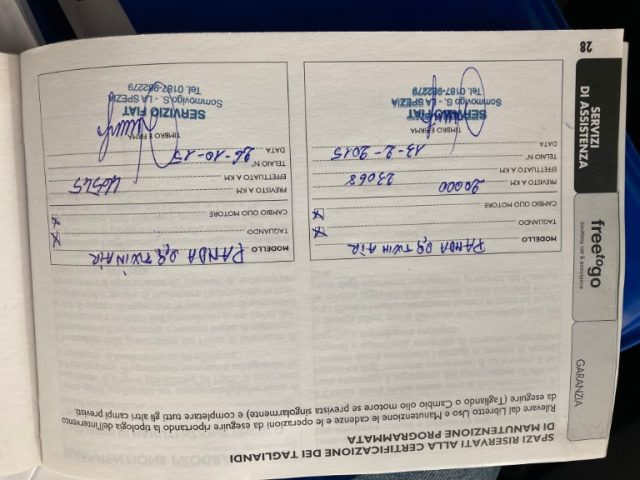 SPAZI RISERVATI ALLA CERTIFICAZIONE DEI TAGLIANDI
DI MANUTENZIONE PROGRAMMATA
Rilevare dal Libretto Uso e Manutenzione le scadenze e le operazioni da eseguire riportando la tipologia dell'intervento
da eseguire (Tagliando o Cambio olio motore se prevista singolarmente) e completare tutti gli altri campi previsti.
MODELLO PANDA 0,9 TWIN AIR
TAGLIANDO X
CAMBIO OLIO MOTORE X
PREVISTO A KM 20000
EFFETTUATO A KM 23068
TELAIO N°
DATA 13-2-2015
TIMBRO E FIRMA
SERVIZIO FIAT
Sommovigo S. - LA SPEZIA
Tel. 0187-982279
MODELLO PANDA 0,9 TWIN AIR
TAGLIANDO X
CAMBIO OLIO MOTORE X
PREVISTO A KM
EFFETTUATO A KM
TELAIO N°
DATA 26-10-17
TIMBRO E FIRMA
SERVIZIO FIAT
Sommovigo S. - LA SPEZIA
Tel. 0187-982279
GARANZIA
freetogo
courtesy car & assistance
SERVIZI
DI ASSISTENZA
28